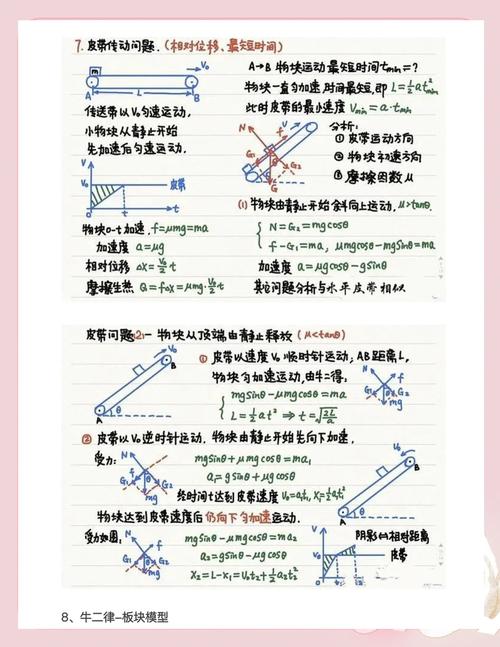 7. 皮带传动问题.(相对位移、最短时间)
m V₀
A L B
传送带以V₀匀速运动,
小物块从静止开始
先加速后匀速运动.
V
V₀ 皮带
0 t t
物块0-t加速, f=μmg=ma
加速度 a=μg
相对位移 ΔX=V₀/2 t
摩擦生热 Q=fΔX=μmg·V₀/2 t
A→B 物块运动最短时间tmin=?
物块一直匀加速,时间最短,即 L=½at²min
此时皮带的最小速度 Vmin=a·tmin
N f V
G₁ G₂
G θ
分析:
① 皮带运动方向
② 物块初速方向
③ 摩擦因数μ
(1) 物块由静止开始斜向上运动, μ>tanθ.
N=G₂=mgcosθ
f-G₁=ma, μmgcosθ-mgsinθ=ma
加速度 a=μgcosθ-gsinθ
其它问题分析与水平皮带相似
皮带问题(2)一物块从顶端由静止释放(μ<tanθ)
V₀
B
A θ
① 皮带以速度 V₀ 顺时针运动, AB距离L,
物块匀加速运动,由牛二得:
mgsinθ-μmgcosθ=ma
L=½at² ⇒ t=√(2L/a)
N f
G₁ G₂
mg
② 皮带以V₀逆时针运动. 物块由静止开始先向下加速,
受力:
N
G₁ G₂
f mg
mgsinθ+μmgcosθ=ma₁
a₁=gsinθ+μgcosθ
经时间t达到皮带速度 V₀=a₁t₁, X₁=½a₁t₁²
V₀
B
A θ
物块达到皮带速度后仍向下匀加速运动.
受力如图:
N f
G₁ G₂
mg
mgsinθ-μmgcosθ=ma₂
a₂=gsinθ-μgcosθ
X₂=L-X₁=V₀t₂+½a₂t₂²
V 阴影⇔相对距离
V₀ 皮带
0 t₁ t₂ t
8、牛二律–板块模型